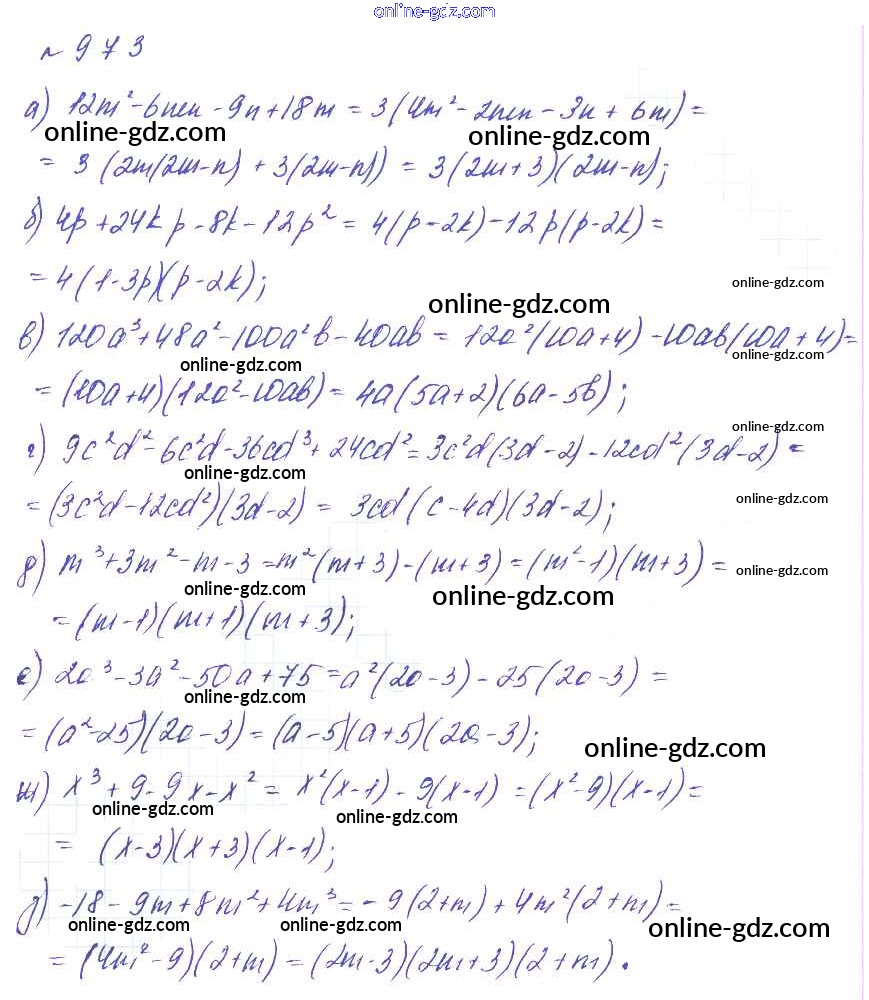 online-gdz.com
№ 973
а) 12m² - 6mn - 9n + 18m = 3(4m² - 2mn - 3n + 6m) =
online-gdz.com online-gdz.com
= 3 (2m(2m-n) + 3(2m-n)) = 3(2m+3)(2m-n);
б) 4p + 24kp - 8k - 12p² = 4(p-2k) - 12p(p-2k) =
online-gdz.com
= 4(1-3p)(p-2k);
online-gdz.com
в) 120a³ + 48a² - 100a²b - 40ab = 12a²(10a+4) - 10ab(10a+4) =
online-gdz.com online-gdz.com
= (10a+4)(12a²-10ab) = 4a(5a+2)(6a-5b);
online-gdz.com
г) 9c²d² - 6c²d - 36cd³ + 24cd² = 3c²d(3d-2) - 12cd²(3d-2) =
online-gdz.com
= (3c²d-12cd²)(3d-2) = 3cd(c-4d)(3d-2);
online-gdz.com
д) m³ + 3m² - m - 3 = m²(m+3) - (m+3) = (m²-1)(m+3) =
online-gdz.com online-gdz.com online-gdz.com
= (m-1)(m+1)(m+3);
е) 2a³ - 3a² - 50a + 75 = a²(2a-3) - 25(2a-3) =
online-gdz.com
= (a²-25)(2a-3) = (a-5)(a+5)(2a-3);
online-gdz.com
ж) x³ + 9 - 9x - x² = x²(x-1) - 9(x-1) = (x²-9)(x-1) =
online-gdz.com online-gdz.com
= (x-3)(x+3)(x-1);
з) -18 - 9m + 8m² + 4m³ = -9(2+m) + 4m²(2+m) =
online-gdz.com online-gdz.com online-gdz.com
= (4m²-9)(2+m) = (2m-3)(2m+3)(2+m).